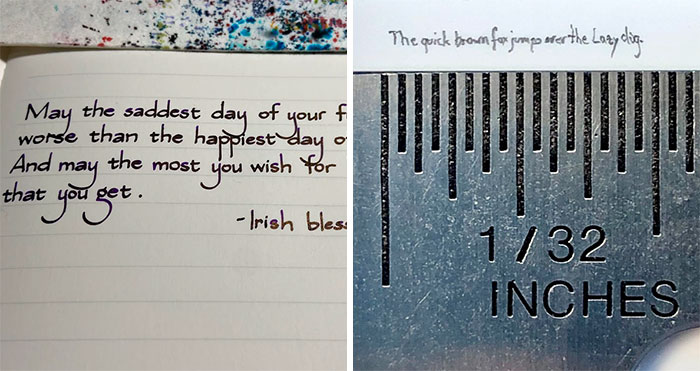 May the saddest day of your f
worse than the happiest day o
And may the most you wish for
that you get .
-Irish bles
The quick brown fox jumps over the Lazy dog.
1/32
INCHES